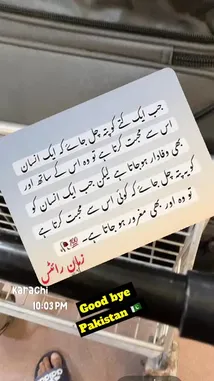 جب ایک کتے کو پتہ چل جائے کہ ایک انسان
اس سے محبت کرتا ہے تو وہ اس کے ساتھ اور
بھی وفادار ہو جاتا ہے لیکن جب ایک انسان کو
کو یہ پتہ چل جائے کہ کوئی اس سے محبت کرتا ہے
تو وہ اور بھی مغرور ہو جاتا ہے۔
زمان رائٹس
Karachi
10:03 PM
Good bye
Pakistan